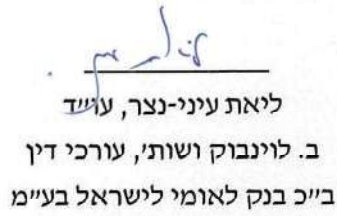 ליאת עיני-נצר, עו״ד
ב. לוינבוק ושות׳, עורכי דין
ב״כ בנק לאומי לישראל בע״מ